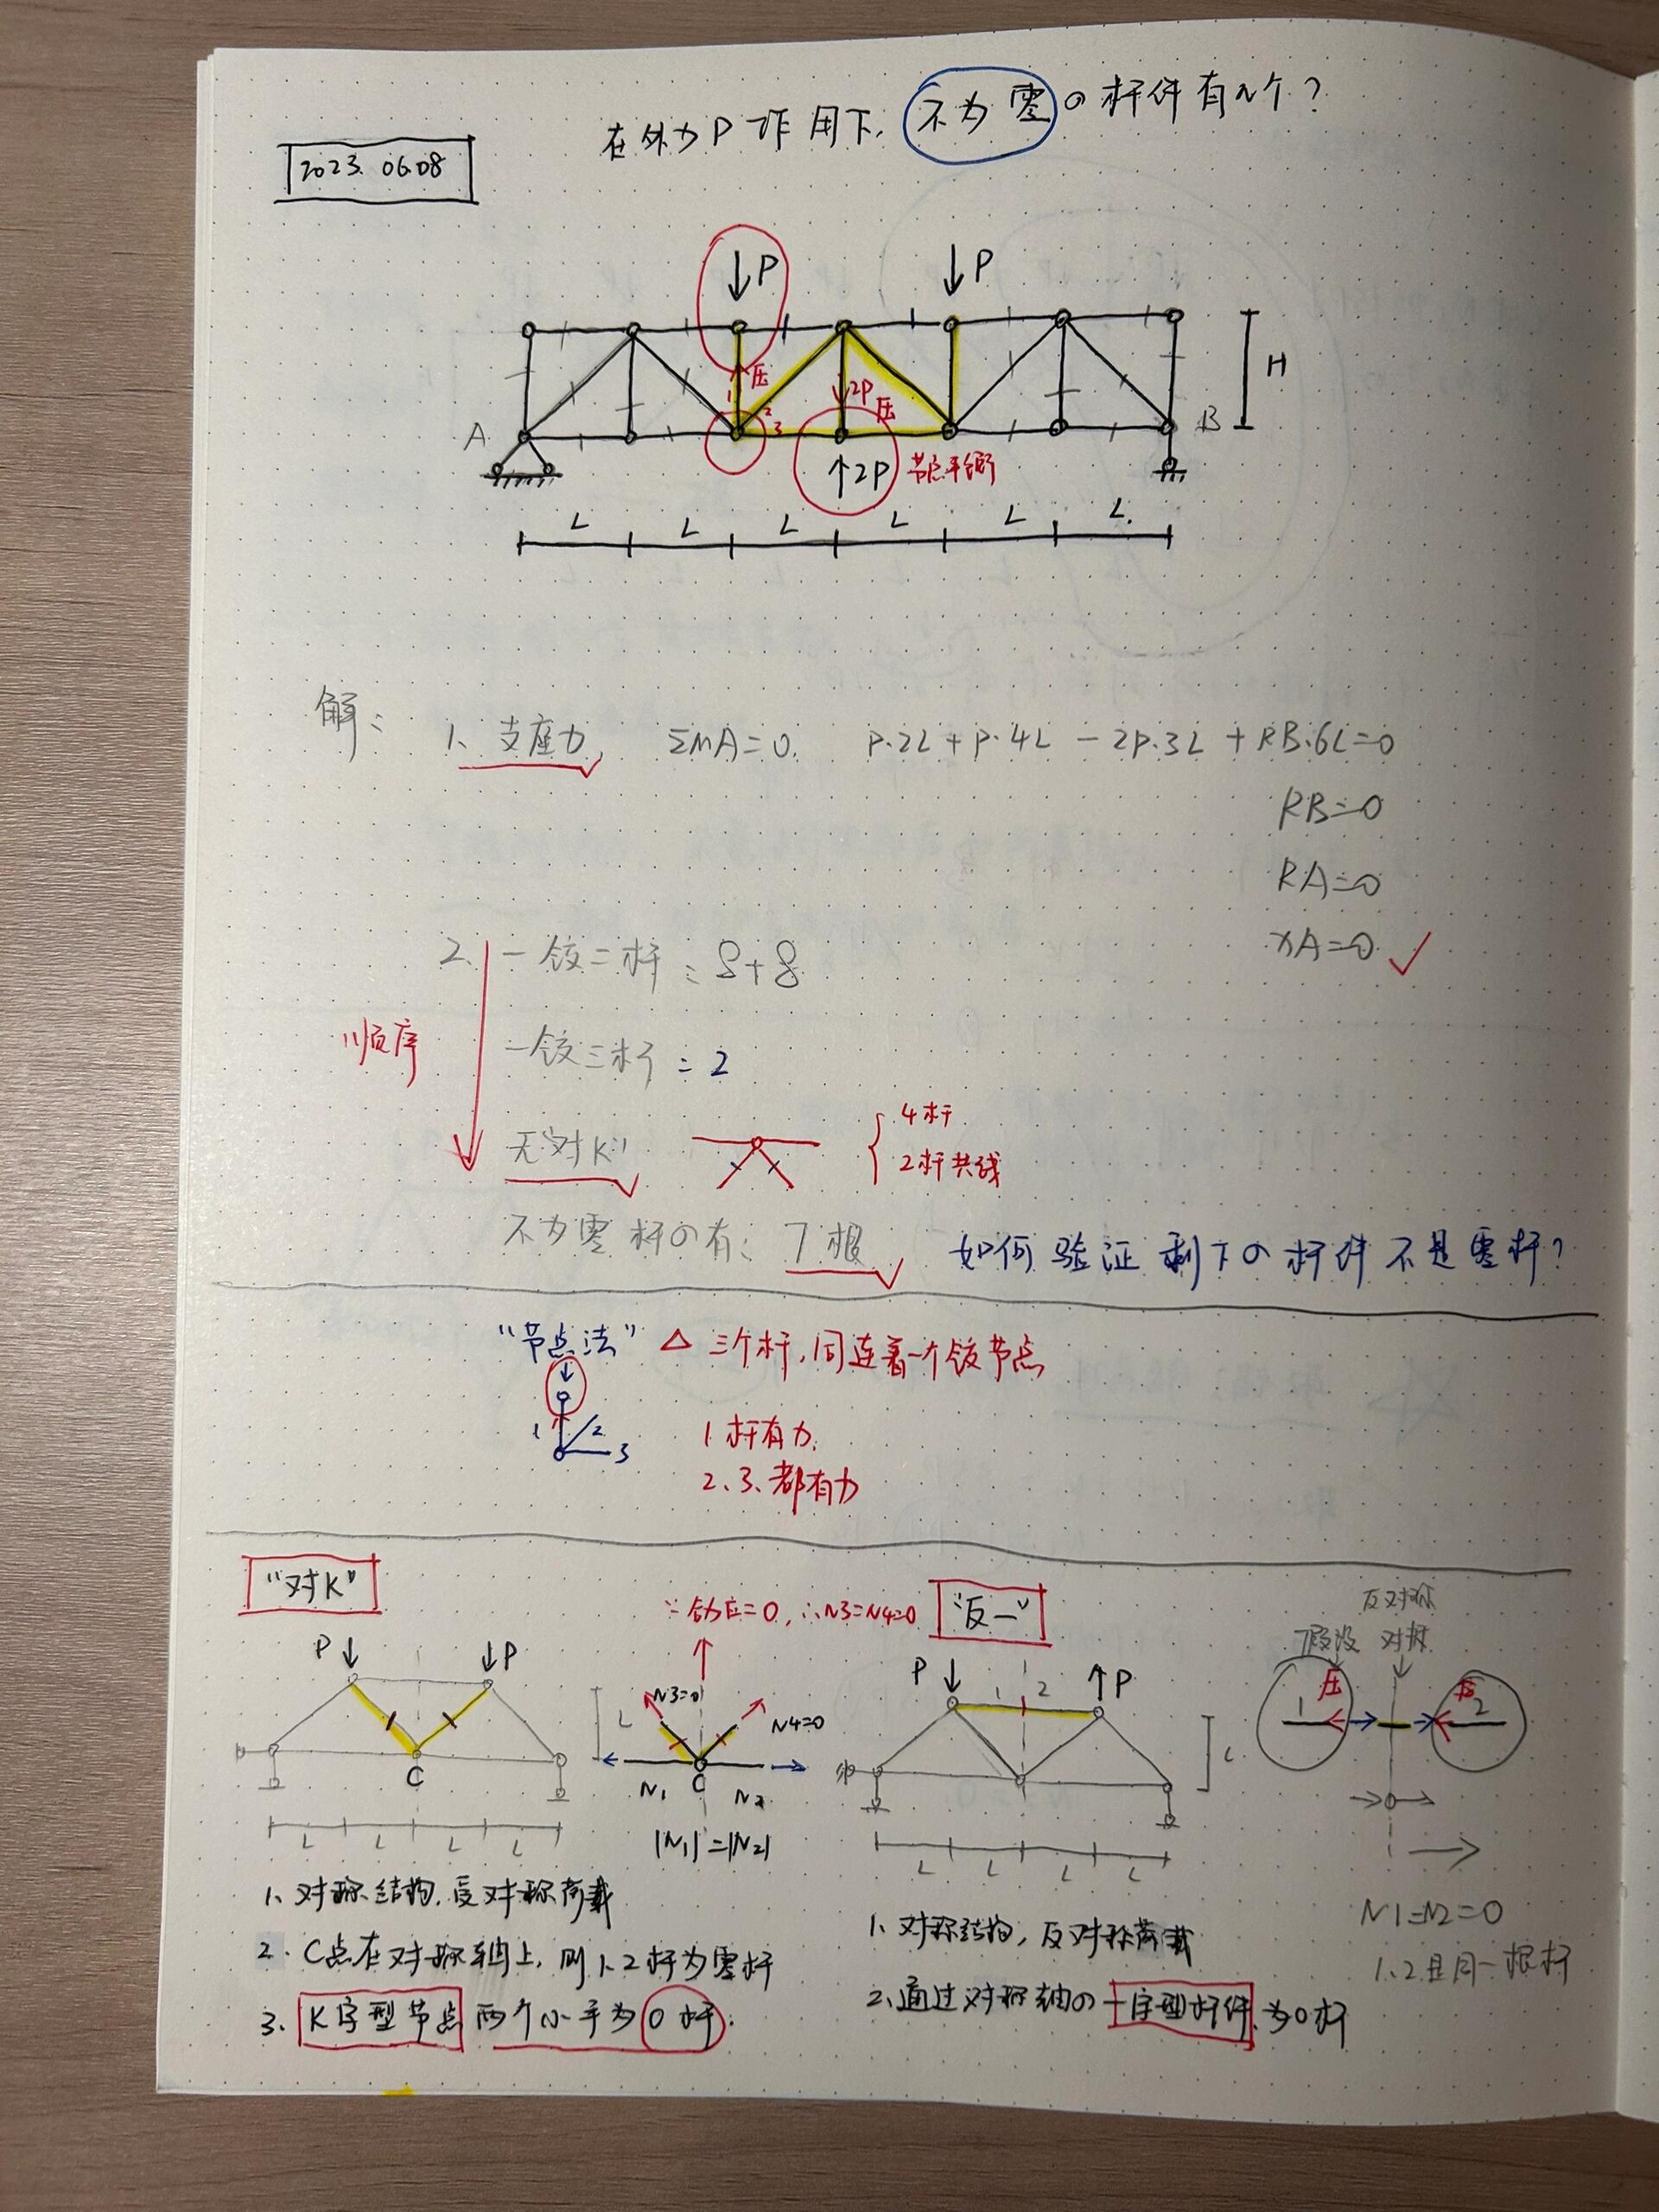 在外力P作用下,不为零の杆件有几个?
2023.06.08
↓P ↓P
H
压
1
2
3
2P
压
A
B
↑2P 节点平衡
L L L L L L
解:
1、支座力, ΣMA=0. P·2L+P·4L-2P·3L+RB·6L=0
RB=0
RA=0
XA=0
2. 一铰二杆:8+8
顺序
一铰三杆:2
无"对K"
4杆
2杆共线
不为零杆の有:7根
如何验证剩下の杆件不是零杆?
"节点法" △ 三个杆,同连着一个铰节点
1 2 3
1杆有力.
2、3、都有力
"对K"
∵合力F=0,∴N3=N4=0
"反一"
反对称
假设 对称
P↓ ↓P
C
L
L L L L
N3=0
N4=0
N1 C N2
|N1|=|N2|
P↓ ↑P
1 2
L
L L L L
压
1
2
N1=N2=0
1、2且同一根杆
1、对称结构,受对称荷载
2、C点在对称轴上,则1、2杆为零杆
3、K字型节点两个小手为0杆.
1、对称结构,反对称荷载
2、通过对称轴の一字型杆件为0杆